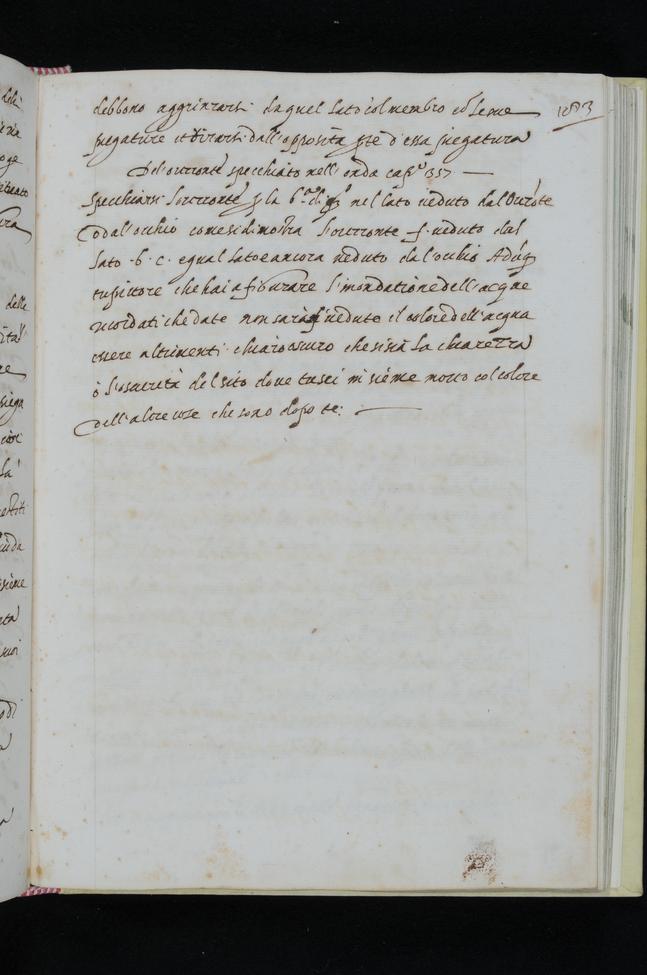 debbono aggrinzarsi da quel lato col membro col seme
piegature et tirarsi dall'opposita p̄te d'essa piegatura
Del'orizonte specchiato nell'onda cap.º 357 —
specchiarsi l'orizonte p la 6.ª di nel lato veduto dal
o dal'occhio come si dimostra l'orizonte f. veduto dal
lato .b. c. equal lato e ancora veduto dal'occhio Adūq
tu pittore che hai a figurare l'inondatione dell'acque
ricordati che da te non sarà veduto il colore dell'acqua
essere altrimenti chiaro o scuro che si sia la chiarezza
ò l'oscurità del sito dove tu sei insieme misto col colore
dell'altre cose che sono dopo te: —